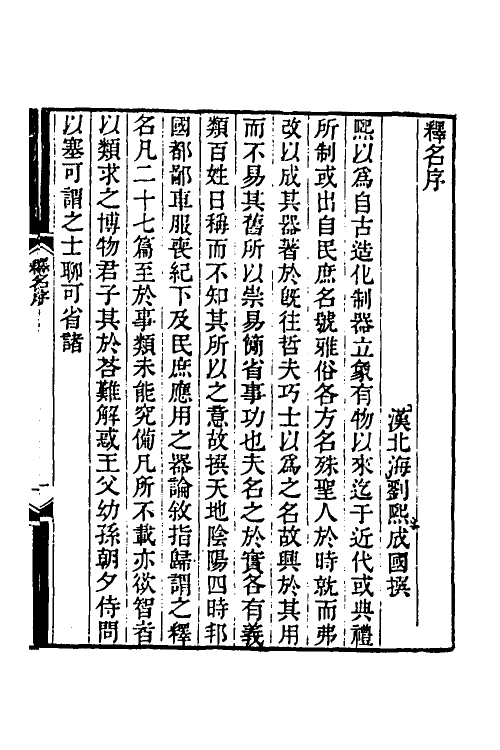 釋名序
漢北海劉熙成國撰
熙以為自古造化制器立象有物以來迄于近代或典禮
所制或出自民庶名號雅俗各方名殊聖人於時就而弗
改以成其器著於旣往哲夫巧士以為之名故興於其用
而不易其舊所以崇易簡省事功也夫名之於實各有義
類百姓日稱而不知其所以之意故撰天地陰陽四時邦
國都鄙車服喪紀下及民庶應用之器論敘指歸謂之釋
名凡二十七篇至於事類未能究備凡所不載亦欲智者
以類求之博物君子其於荅難解惑王父幼孫朝夕侍問
以塞可謂之士聊可省諸
釋名序
一